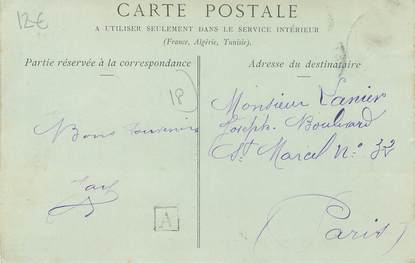 12€
CARTE POSTALE
A UTILISER SEULEMENT DANS LE SERVICE INTÉRIEUR
(France, Algérie, Tunisie).
Partie réservée à la correspondance
Adresse du destinataire
18
Bons Souvenirs
A
Monsieur Lanier
Joseph. Boulevard
St Marcel N° 32
Paris